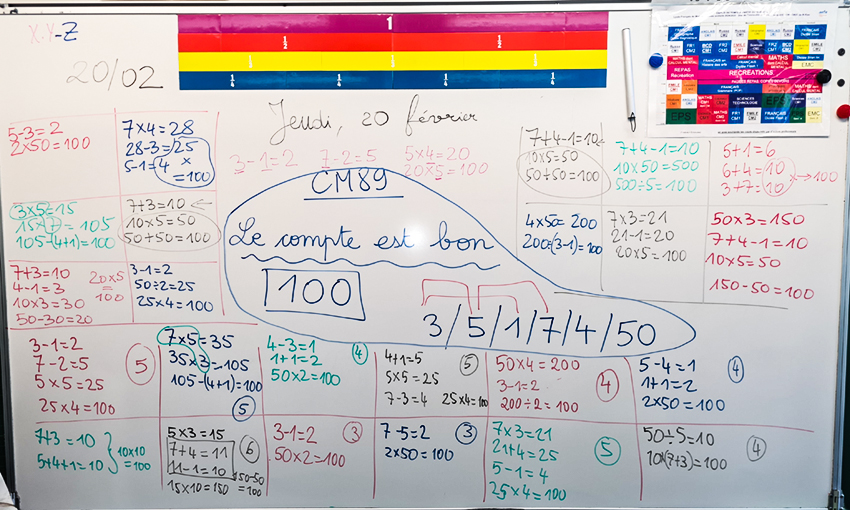 X.Y-Z
20/02
1
1/2 1/2
1/4 1/4 1/4 1/4
RECREATIONS
Jeudi, 20 février
5-3=2
2x50=100
7x4=28
28-3=25
5-1=4 x
=100
3-1=2 7-2=5 5x4=20
20x5=100
7+4-1=10
10x5=50
50+50=100
7+4-1=10
10x50=500
500÷5=100
5+1=6
6+4=10
3+7=10 x→100
3x5=15
15x7=105
105-(4+1)=100
7+3=10 ←
10x5=50
50+50=100
CM89
Le compte est bon
100
3/5/1/7/4/50
4x50=200
200÷(3-1)=100
7x3=21
21-1=20
20x5=100
50x3=150
7+4-1=10
10x5=50
150-50=100
7+3=10
4-1=3
10x3=30
50-30=20
20x5
=
100
3-1=2
50÷2=25
25x4=100
3-1=2
7-2=5
5x5=25
25x4=100
5
7x5=35
35x3=105
105-(4+1)=100
5
4-3=1
1+1=2
50x2=100
4
4+1=5
5x5=25
7-3=4 25x4=100
5
50x4=200
3-1=2
200÷2=100
4
5-4=1
1+1=2
2x50=100
4
7+3=10
5+4+1=10
10x10
=100
5x3=15
7+4=11
11-1=10
15x10=150
150-50
=100
6
3-1=2
50x2=100
3
7-5=2
2x50=100
3
7x3=21
21+4=25
5-1=4
25x4=100
5
50÷5=10
10x(7+3)=100
4